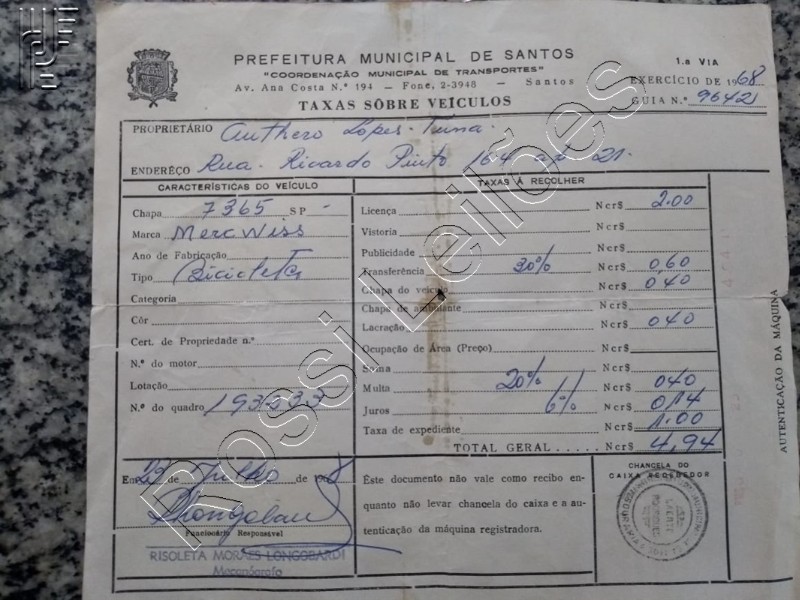 PREFEITURA MUNICIPAL DE SANTOS
1.a VIA
"COORDENAÇÃO MUNICIPAL DE TRANSPORTES"
EXERCÍCIO DE 1968
Av. Ana Costa N.º 194 — Fone, 2-3948 — Santos
GUIA N.º 96421
TAXAS SÔBRE VEÍCULOS
PROPRIETÁRIO Authero Lopes
ENDERÊÇO Rua Ricardo Pinto 164 21
CARACTERÍSTICAS DO VEÍCULO
TAXAS À RECOLHER
Chapa 7365 SP -
Marca Merc Wiss
Ano de Fabricação
Tipo Bicicleta
Categoria
Côr
Cert. de Propriedade n.º
N.º do motor
Lotação
N.º do quadro 193533
Licença Ncr$ 2.00
Vistoria Ncr$
Publicidade Ncr$
Transferência 30% Ncr$ 060
Chapa do veículo Ncr$ 040
Chapa de ambulante Ncr$
Lacração Ncr$ 040
Ocupação de Área (Preço) Ncr$
Soma Ncr$
Multa 20% Ncr$ 040
Juros 6% Ncr$ 014
Taxa de expediente Ncr$ 1.00
TOTAL GERAL Ncr$ 4,94
AUTENTICAÇÃO DA MÁQUINA
Em 23 de Julho de 1968
Funcionário Responsável
RISOLETA MORAES LONGOBARDI
Mecanógrafa
Êste documento não vale como recibo enquanto
não levar chancela do caixa e a autenticação
da máquina registradora.
CHANCELA DO
CAIXA RECEBEDOR
Rossi Leilões